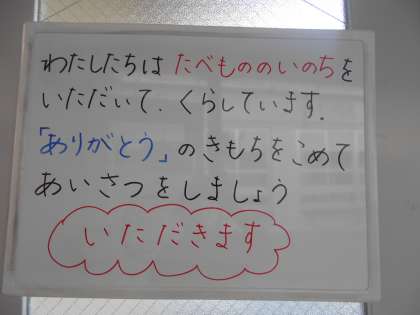 わたしたちは たべもののいのちを
いただいて、くらしています.
「ありがとう」のきもちをこめて
あいさつをしましょう
いただきます